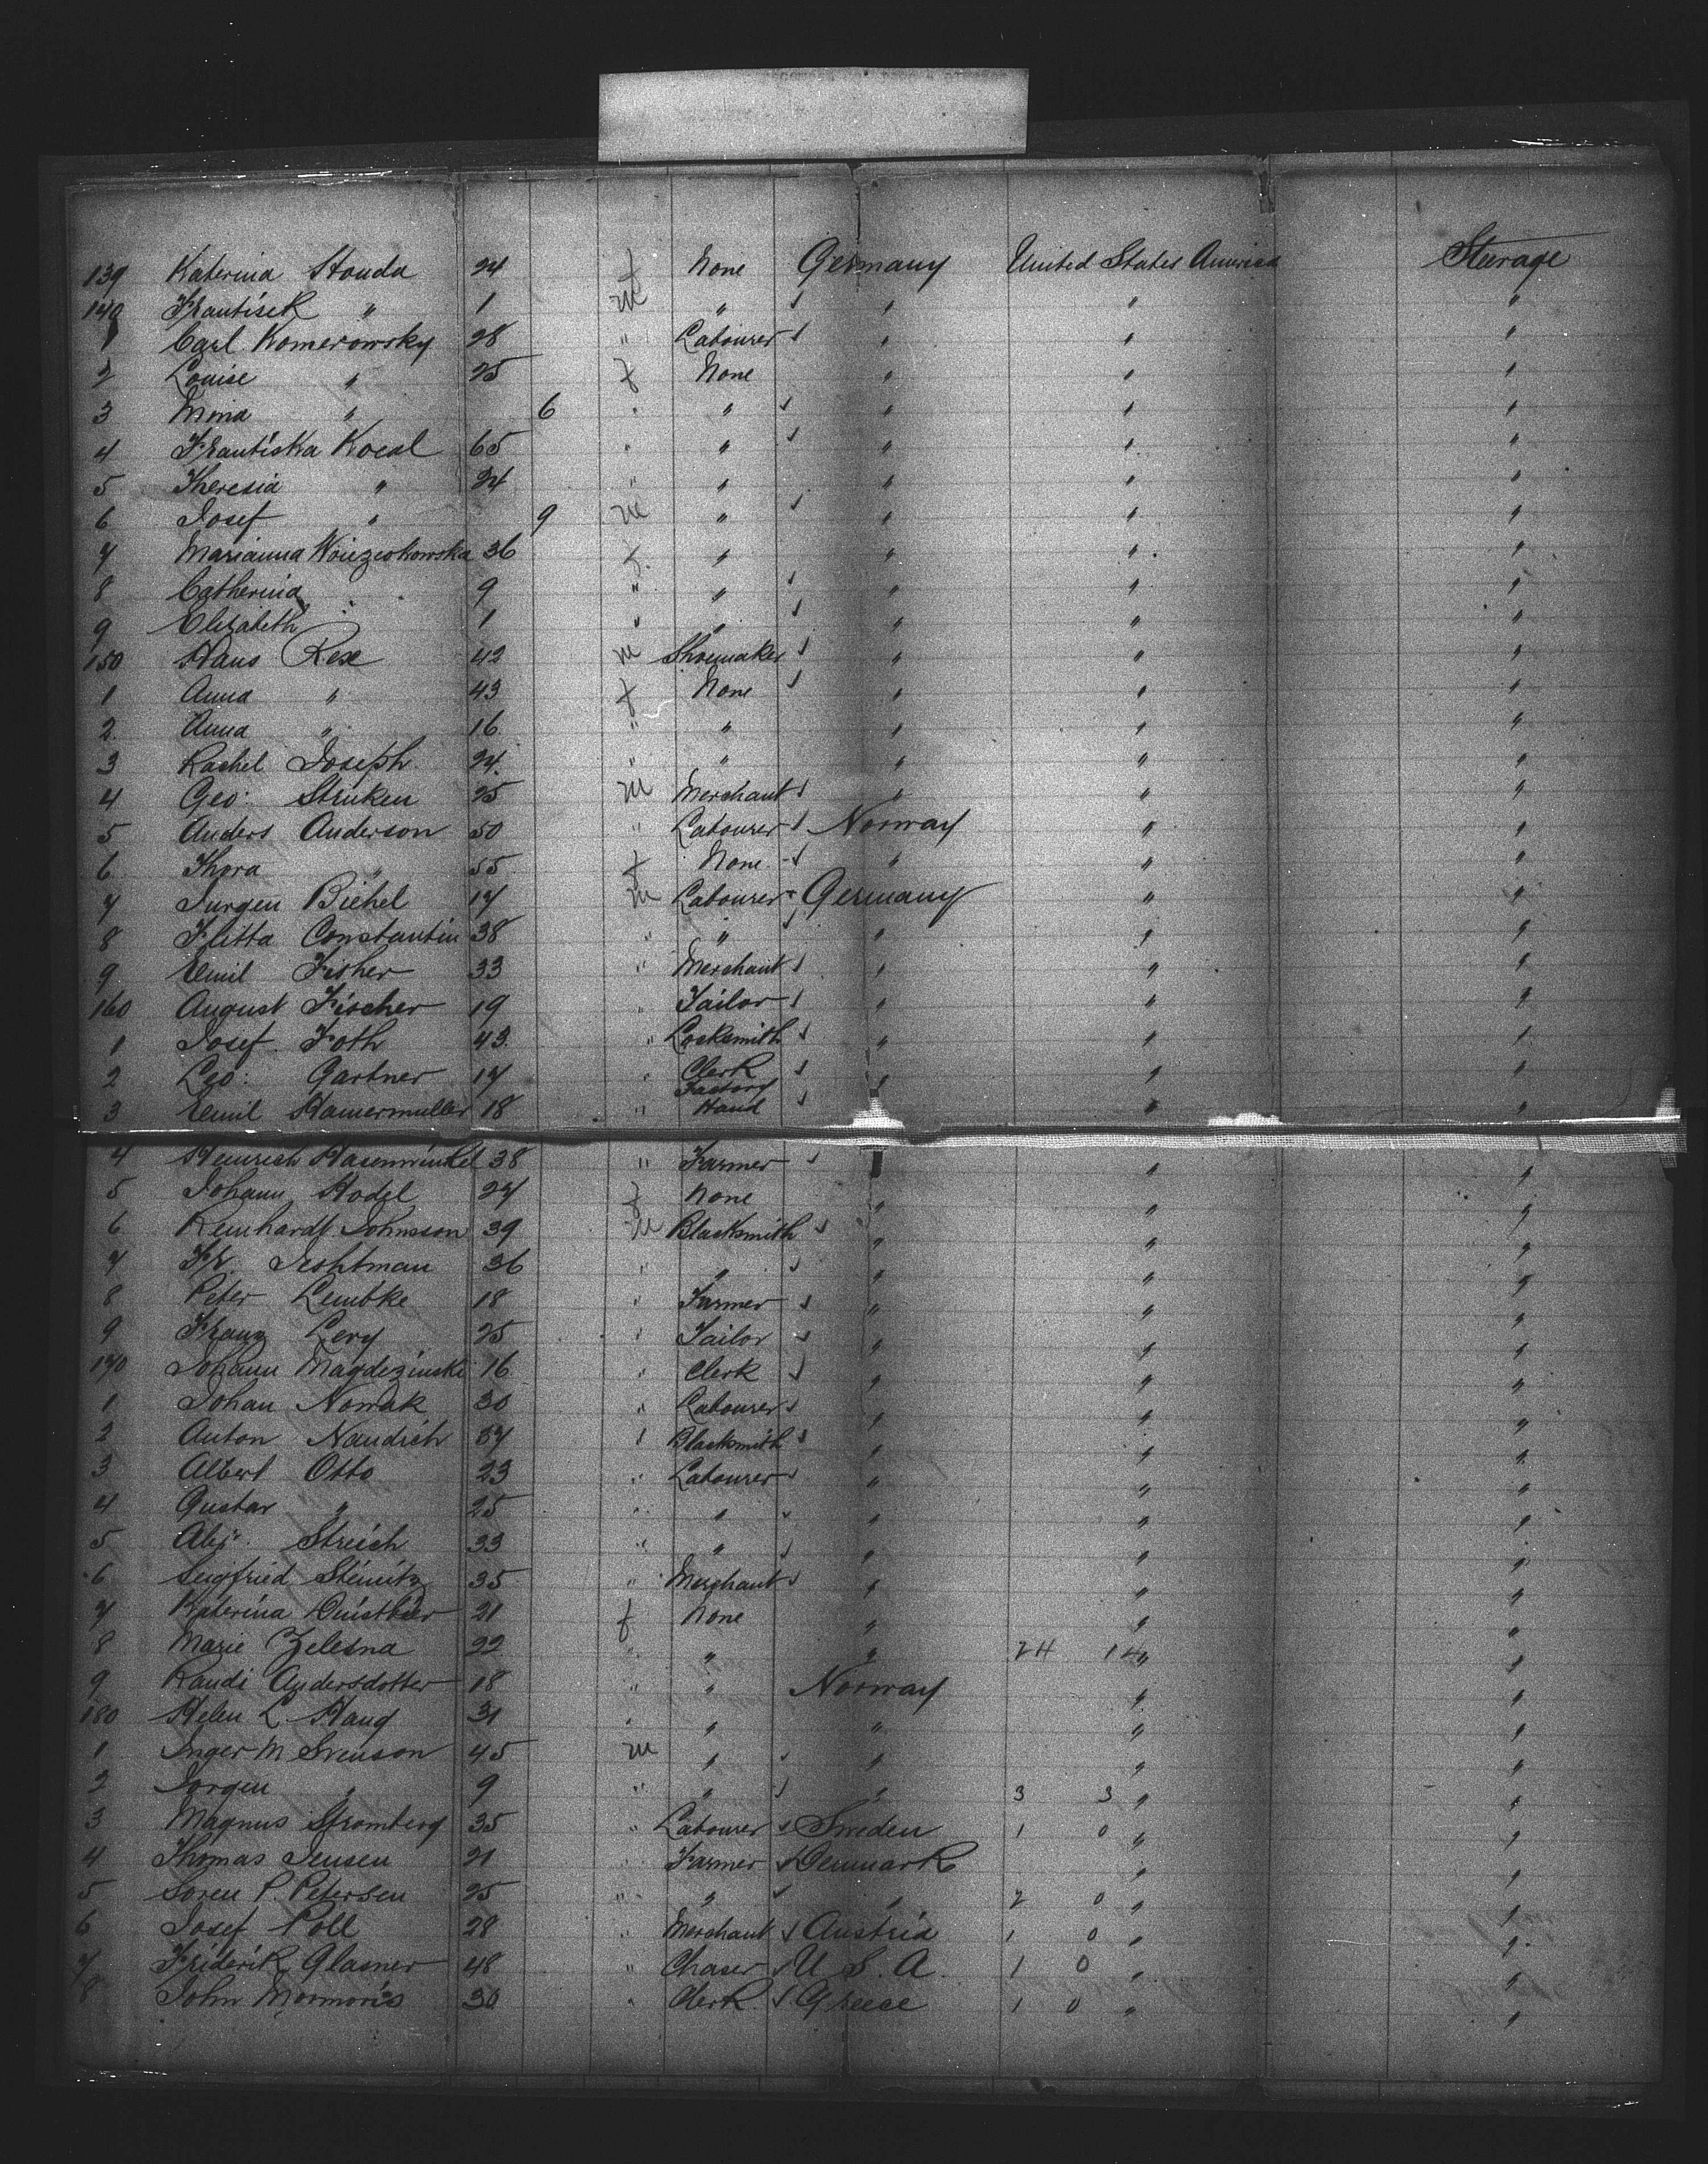 139 Katerina Houda 24 f None Germany United States America Steerage
140 Frantisek " 1 m " " " "
1 Carl Komerowsky 28 " Labourer " " "
2 Louise " 25 f None " " "
3 Mina " 6 " " " " "
4 Frantiska Kocal 65 " " " " "
5 Theresia " 24 " " " " "
6 Josef " 9 m " " " "
7 Marianna 36 f " " " "
8 Catherina " 9 " " " " "
9 Elizabeth " 1 " " " " "
150 Hans Rex 42 m Shoemaker " " "
1 Anna " 43 f None " " "
2 Anna " 16 " " " " "
3 Rachel Joseph 24 " " " " "
4 Geo: Struken 25 m Merchant " " "
5 Anders Anderson 50 " Labourer Norway " "
6 Thora " 55 f None " " "
7 Jurgen Biehel 17 m Labourer Germany " "
8 Flitta Constantin 38 " " " " "
9 Emil Fisher 33 " Merchant " " "
160 August Fischer 19 " Tailor " " "
1 Josef Foth 43 " Locksmith " " "
2 Leo: Gartner 17 " Clerk " " "
3 Emil Hamermuller 18 " Factory Hand " " "
4 Heinrich Hasenwinkel 38 " Farmer " " "
5 Johann Hodel 27 f None " " "
6 Reinhardt Johnsson 39 m Blacksmith " " "
7 Fr. 36 " " " " "
8 Peter Lembke 18 " Farmer " " "
9 Franz Levy 25 " Tailor " " "
170 Johann Magdezinski 16 " Clerk " " "
1 Johan Nowak 30 " Labourer " " "
2 Anton Naudich 37 " Blacksmith " " "
3 Albert Otto 23 " Labourer " " "
4 Gustav " 25 " " " " "
5 Alex. Streich 33 " " " " "
6 Seigfried Steinitz 35 " Merchant " " "
7 Katerina 21 f None " " "
8 Marie Zelesna 22 " " " 24 14 " "
9 Randi Andersdotter 18 " " Norway " "
180 Helen L. Haug 31 " " " " "
1 Inger M Svenson 45 m " " " "
2 Jorgen " 9 " " " 3 3 " "
3 Magnus Stromberg 35 " Labourer Sweden 1 0 " "
4 Thomas Jensen 21 " Farmer Denmark " "
5 Soren P. Petersen 25 " " " 2 0 " "
6 Josef Poll 28 " Merchant Austria 1 0 " "
7 Friderik Glasner 48 " Chaser U. S. A. 1 0 " "
8 John Mormoris 30 " Clerk Greece 1 0 " "